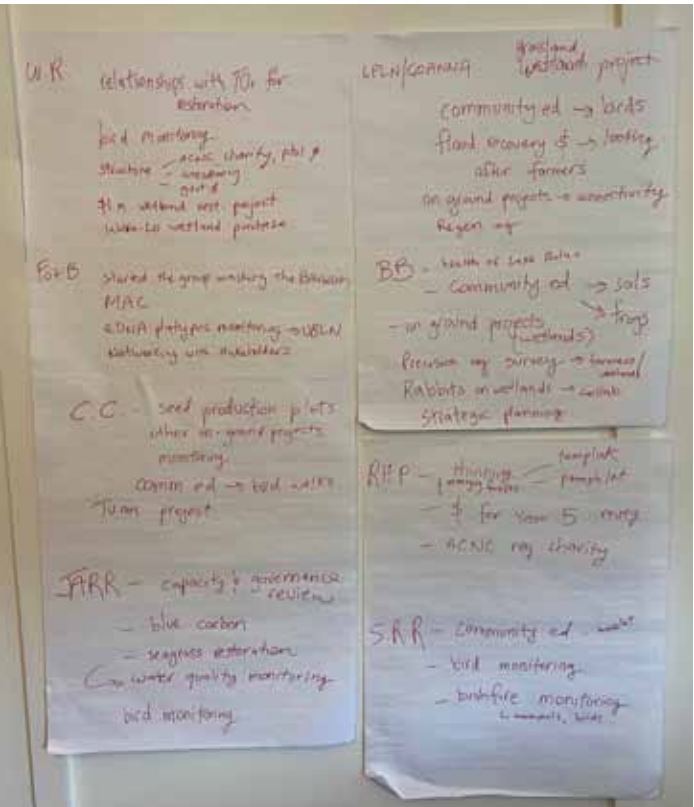 W.R
relationships with TOs for
restoration
bird monitoring
structure - ACNC charity, pbl $
govt $
$1 m wetland rest. project
wetland purchase
started the group washing the
MAC
eDNA platypus monitoring → UBLN
Networking with stakeholders
C.C. - seed production plots
other on-ground projects
monitoring
Comm ed → bird walks
project
JARR - capacity & governance
review
- blue carbon
- seagrass restoration
↳ water quality monitoring
bird monitoring
grassland
wetland project
community ed → birds
flood recovery $ → looking
after farmers
on ground projects → connectivity
Regen ag
BB - health of Lake
- Community ed → soils
→ frogs
- on ground projects
(wetlands)
survey → farmers/
Rabbits on wetlands → collab
Strategic planning
thinning - template
- pamphlet
- $ for year 5
- ACNC reg charity
SRR - Community ed
- bird monitoring
- bushfire monitoring
birds